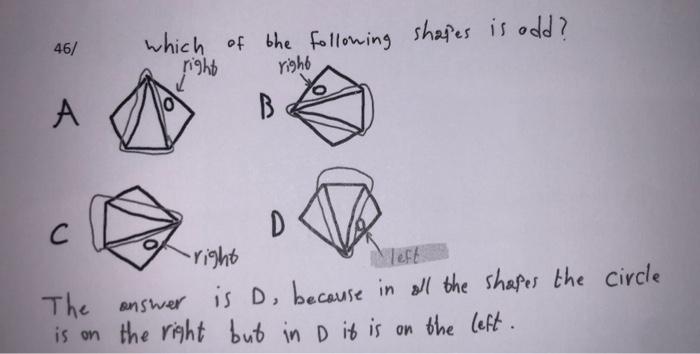 46/ which of the following shapes is odd?
right right
A B
C D
right left
The answer is D, because in all the shapes the circle
is on the right but in D it is on the left.